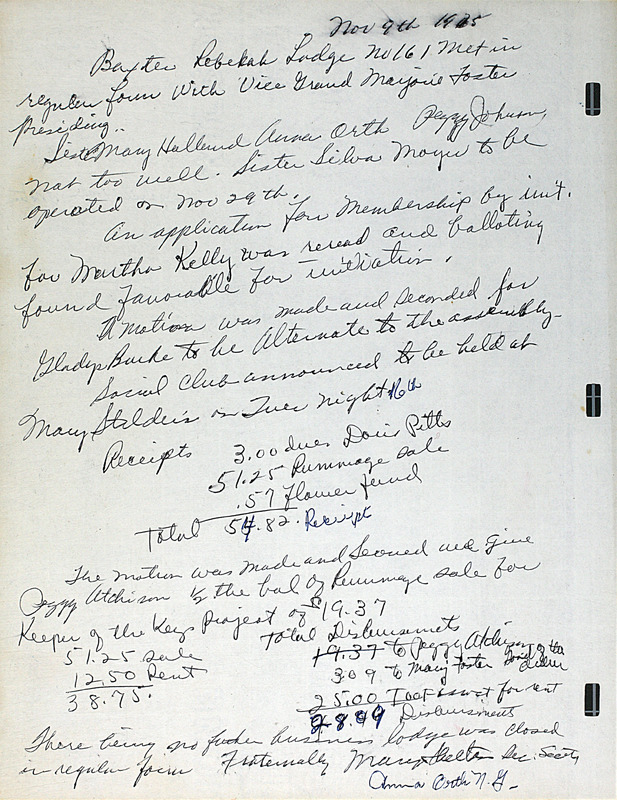 Nov 9th 1965
Baxter Rebekah Lodge No 161 Met in
regular form With Vice Grand Marjorie Foster
Presiding..
Sister Mary Holland Anna Orth Peggy Johnson,
not too well. Sister Silva Moyer to be
operated on Nov 29th.
An application for Membership by init.
for Martha Kelly was reread and balloting
found favorable for initiation.
A motion was made and seconded for
Gladys Burke to be Alternate to the assembly.
Social Club announced to be held at
Mary Stelders on Tues night 16th
Receipts 3.00 dues Doris Pitts
51.25 Rummage sale
.57 flower fund
Total 54.82. Receipt
The motion was made and Seconed we give
Peggy Atchison ½ the bal of Rummage sale for
Keeper of the Keys Project of $19.37
Total Disbursments
51.25 sale
19.37 to Peggy Atchison
12.50 Rent
3.09 to Mary Foster
38.75.
25.00 IOOF for rent
28.09 Disbursments
There being no futher business lodge was closed
in regular form Fraternally Mary Sec.
Anna Orth N.G.